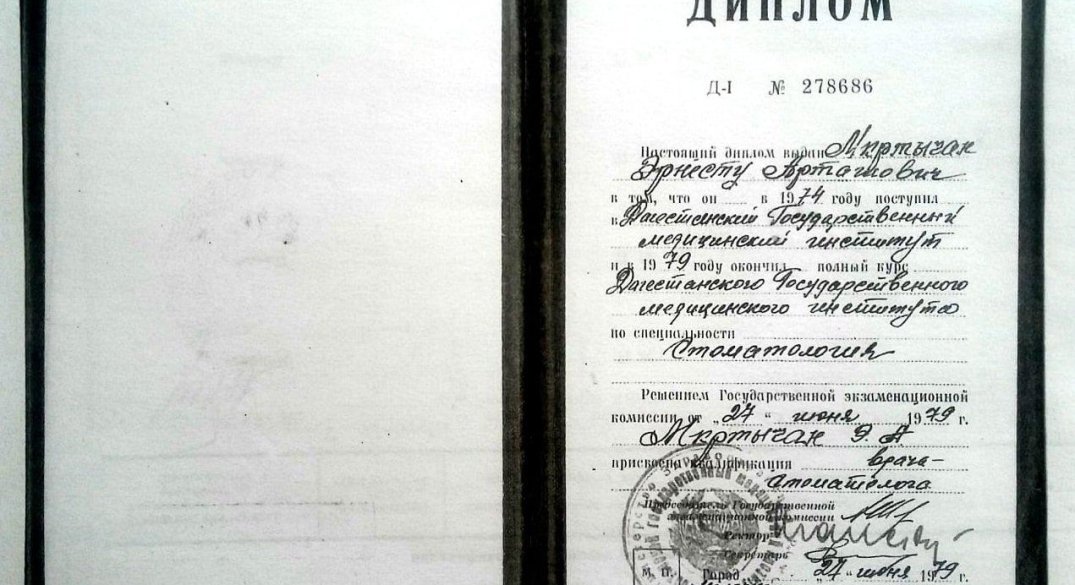 ДИПЛОМ
Д-I № 278686
Настоящий диплом выдан Мкртычан
Эрнесту Арташович
в том, что он в 1974 году поступил
в Дагестанский Государственный
медицинский институт
и в 1979 году окончил полный курс
Дагестанского Государственного
медицинского института
по специальности
Стоматология
Решением Государственной экзаменационной
комиссии от „27“ июня 1979 г.
Мкртычан Э. А
присвоена квалификация врача-
стоматолога
Председатель Государственной
экзаменационной комиссии
Ректор
Секретарь
М. П. Город „27“ июня 1979